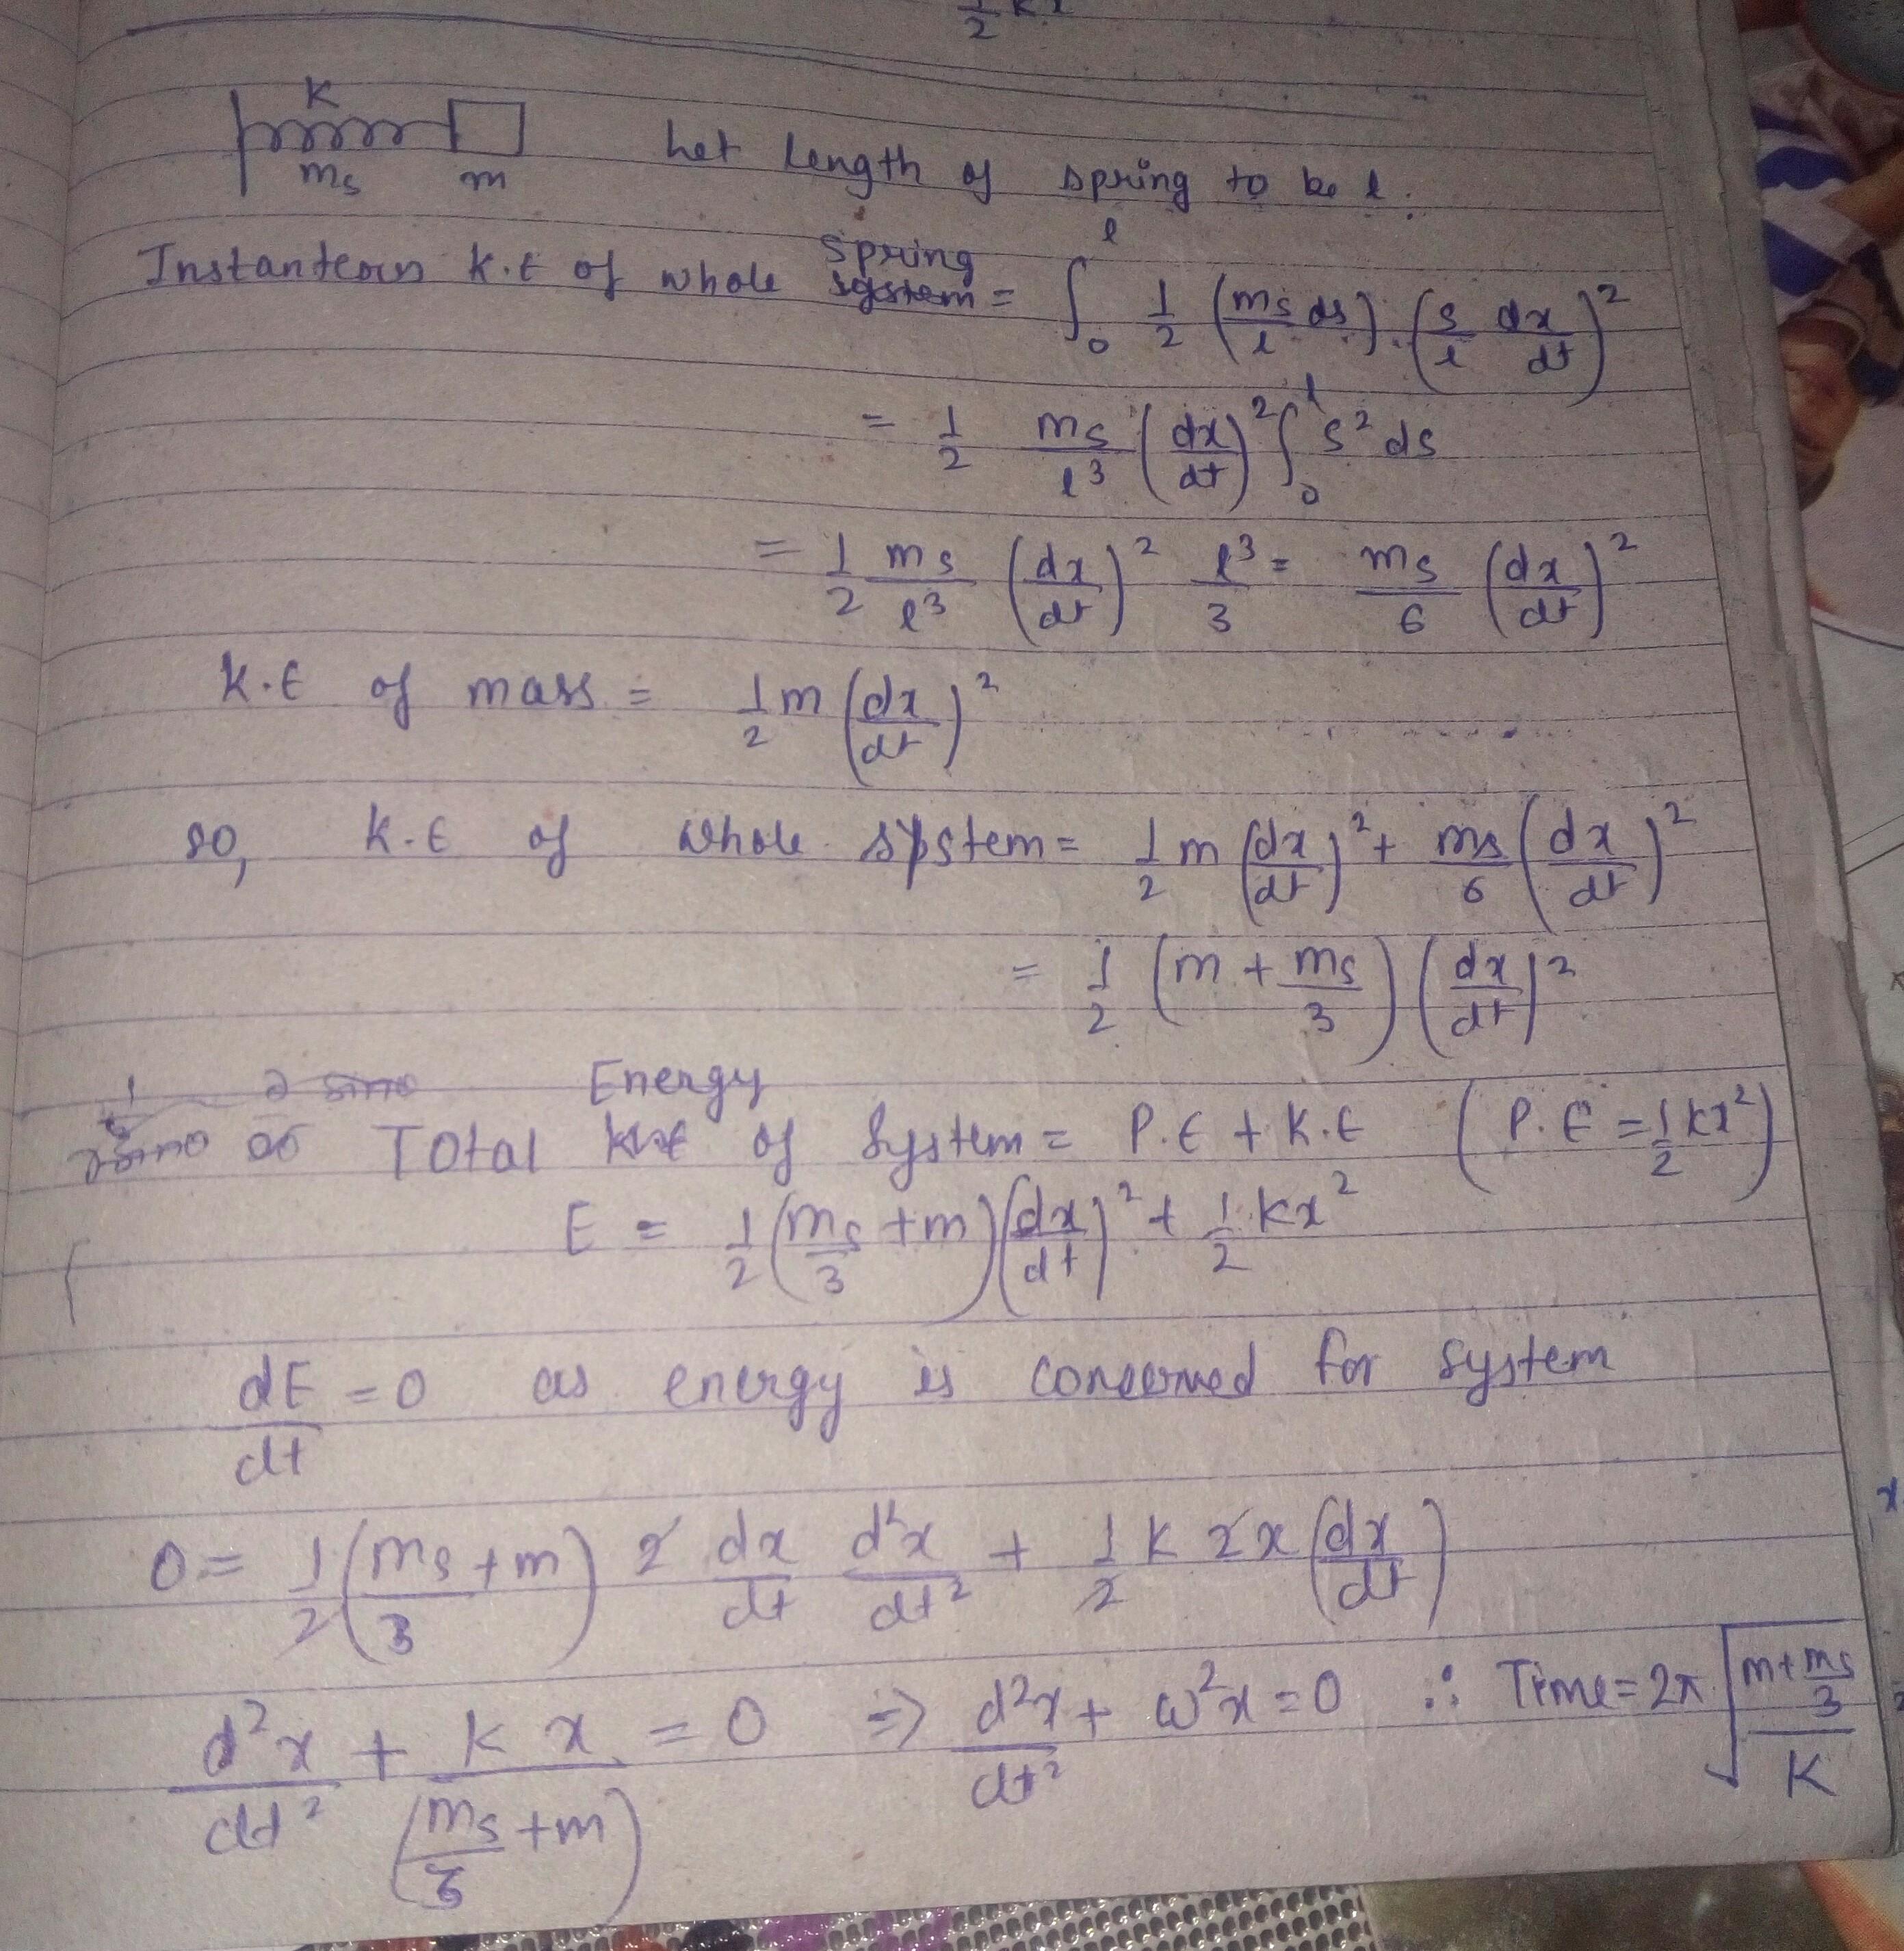 1/2 k x
K
ms m
Let Length of spring to be l.
Instanteous K.E of whole spring system = ∫₀^l 1/2 (ms/l ds) · (s/l dx/dt)²
= 1/2 ms/l³ (dx/dt)² ∫₀^l s² ds
= 1/2 ms/l³ (dx/dt)² l³/3 = ms/6 (dx/dt)²
K.E of mass = 1/2 m (dx/dt)²
so, K.E of whole system = 1/2 m (dx/dt)² + ms/6 (dx/dt)²
= 1/2 (m + ms/3) (dx/dt)²
Energy
Total of System = P.E + K.E (P.E = 1/2 kx²)
E = 1/2 (ms/3 + m) (dx/dt)² + 1/2 kx²
dE/dt = 0 as energy is conserved for system
0 = 1/2 (ms/3 + m) 2 dx/dt d²x/dt² + 1/2 K 2x (dx/dt)
d²x/dt² + K x/(ms/3 + m) = 0 ⇒ d²x/dt² + ω²x = 0 ∴ Time = 2π √((m + ms/3)/K)